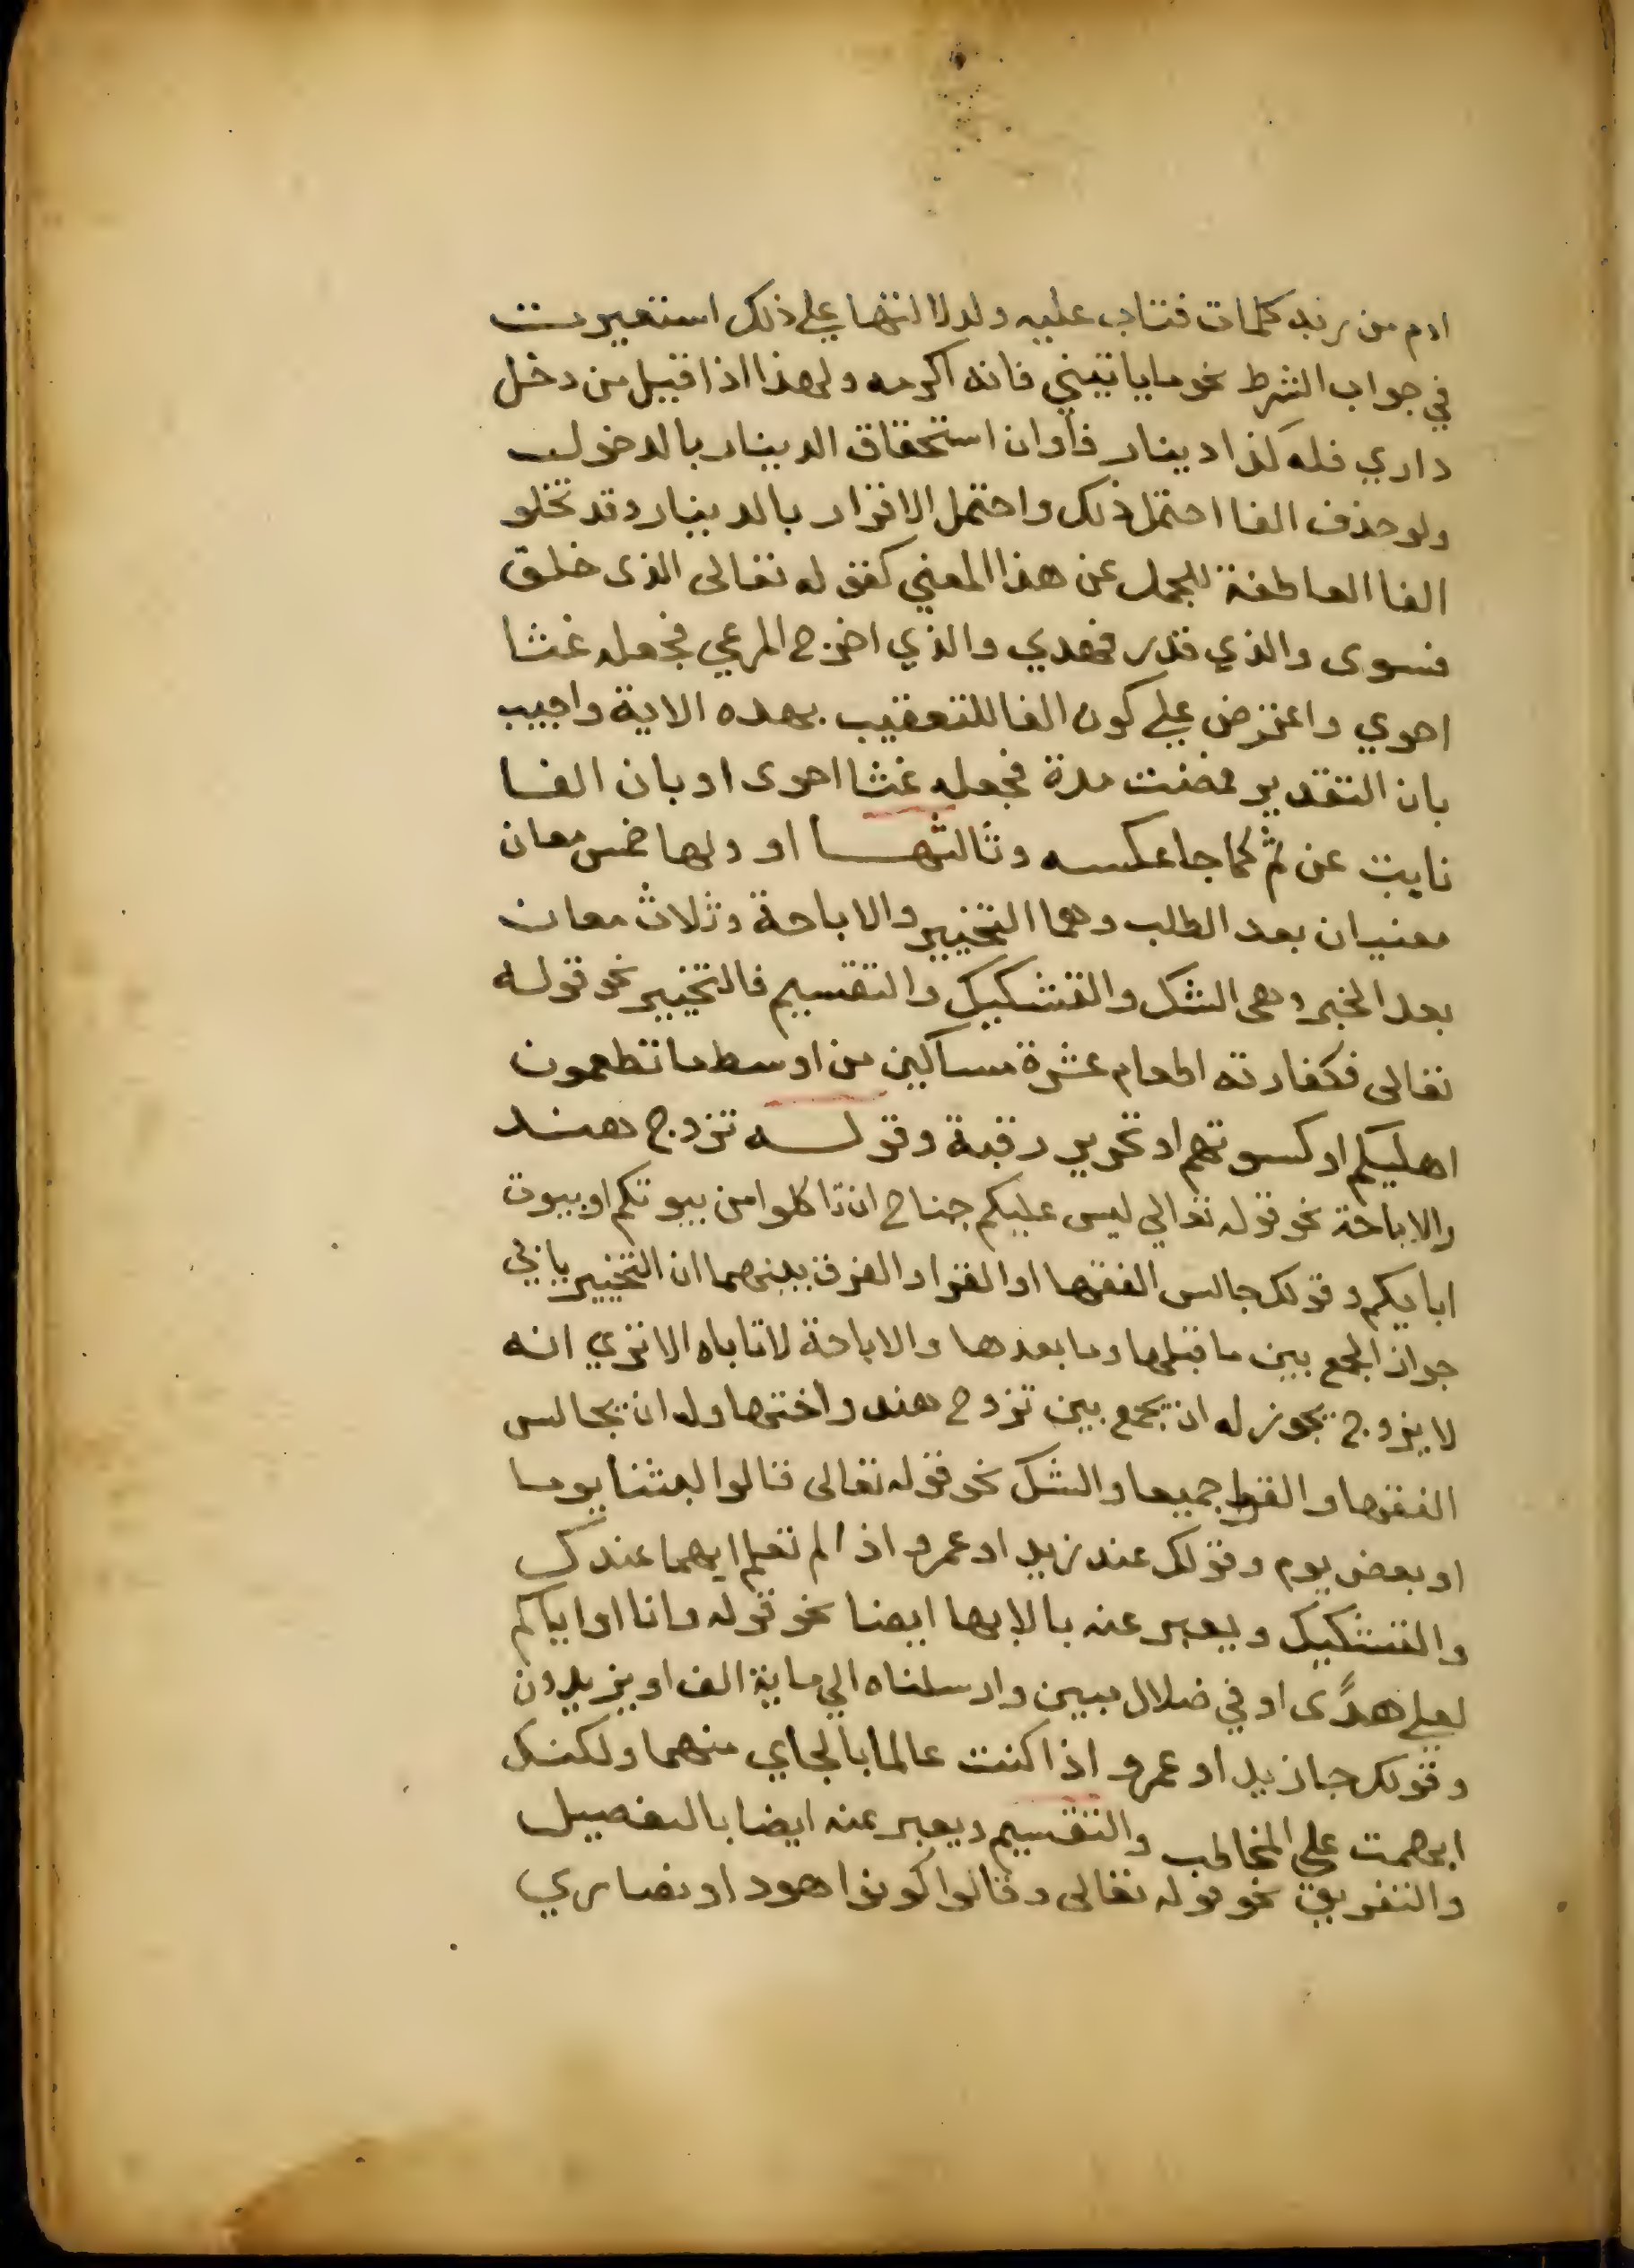 ادم من ربه كلمات فتاب عليه ولدلالتها علي ذلك استعيرت
في جواب الشرط نحو ما ياتيني فانه اكرمه ولهذا اذا قيل من دخل
داري فله كذا دينار فاوان استحقاق الدينار بالدخول
ولو حذف الفا احتمل ذلك واحتمل الاقرار بالدينار وقد تخلو
الفا العاطفة للجمل عن هذا المعني كقوله تعالى الذى خلق
فسوى والذي قدر فهدي والذي اخرج المرعي فجعله غثا
احوي واعترض علي كون الفا للتعقيب بهده الاية واجيب
بان التقدير فمضت مدة فجعله غثا احوى او بان الفا
نايبت عن ثم كما جا عكسه وثالثها او ولها خمس معان
معنيان بعد الطلب وهما التخيير والاباحة وثلاث معان
بعد الخبر وهى الشك والتشكيك والتقسيم فالتخيير نحو قوله
تعالى فكفارته اطعام عشرة مساكين من اوسط ما تطعمون
اهليكم او كسوتهم او تحرير رقبة وقوله تزوج هند
والاباحة نحو قوله تعالي ليس عليكم جناح ان تاكلوا من بيوتكم او بيوت
ابايكم وقولك جالس الفقها او القرا والفرق بينهما ان التخيير يابي
جواز الجمع بين ما قبلها وما بعدها والاباحة لاتاباه الاتري انه
لا يزوج يجوز له ان يجمع بين تزوج هند واختها وله ان يجالس
الفقها والقرا جميعا والشك نحو قوله تعالى قالوا لبثنا يوما
او بعض يوم وقولك عند زيد او عمرو اذ الم تعلم ايهما عندك
والتشكيك ويعبر عنه بالابها ايضا نحو قوله وانا او اياكم
لعلي هدًى او في ضلال مبين وارسلناه الي ماية الف او يزيدون
وقولك جا زيد او عمرو اذا كنت عالما بالجاي منهما ولكنك
ابهمت علي المخاطب والتقسيم ويعبر عنه ايضا بالتفصيل
والتفريق نحو قوله تعالى وقالوا كونوا هود او نصاري